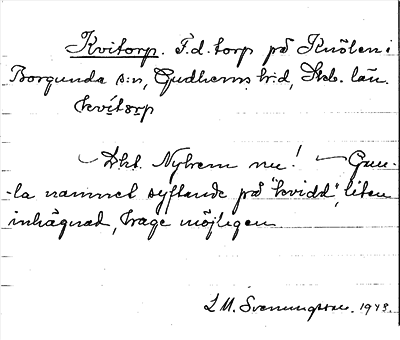 Kvitorp. F.d. torp på Knölen i
Borgunda s:n, Gudhems hrd, Skb. län.
kvítorp
— Dkt. Nyhem nu! — Gam-
-la namnet syftande på "kvidd", liten
inhägnad, hage möjligen.
L M. Svenungsson. 1943.